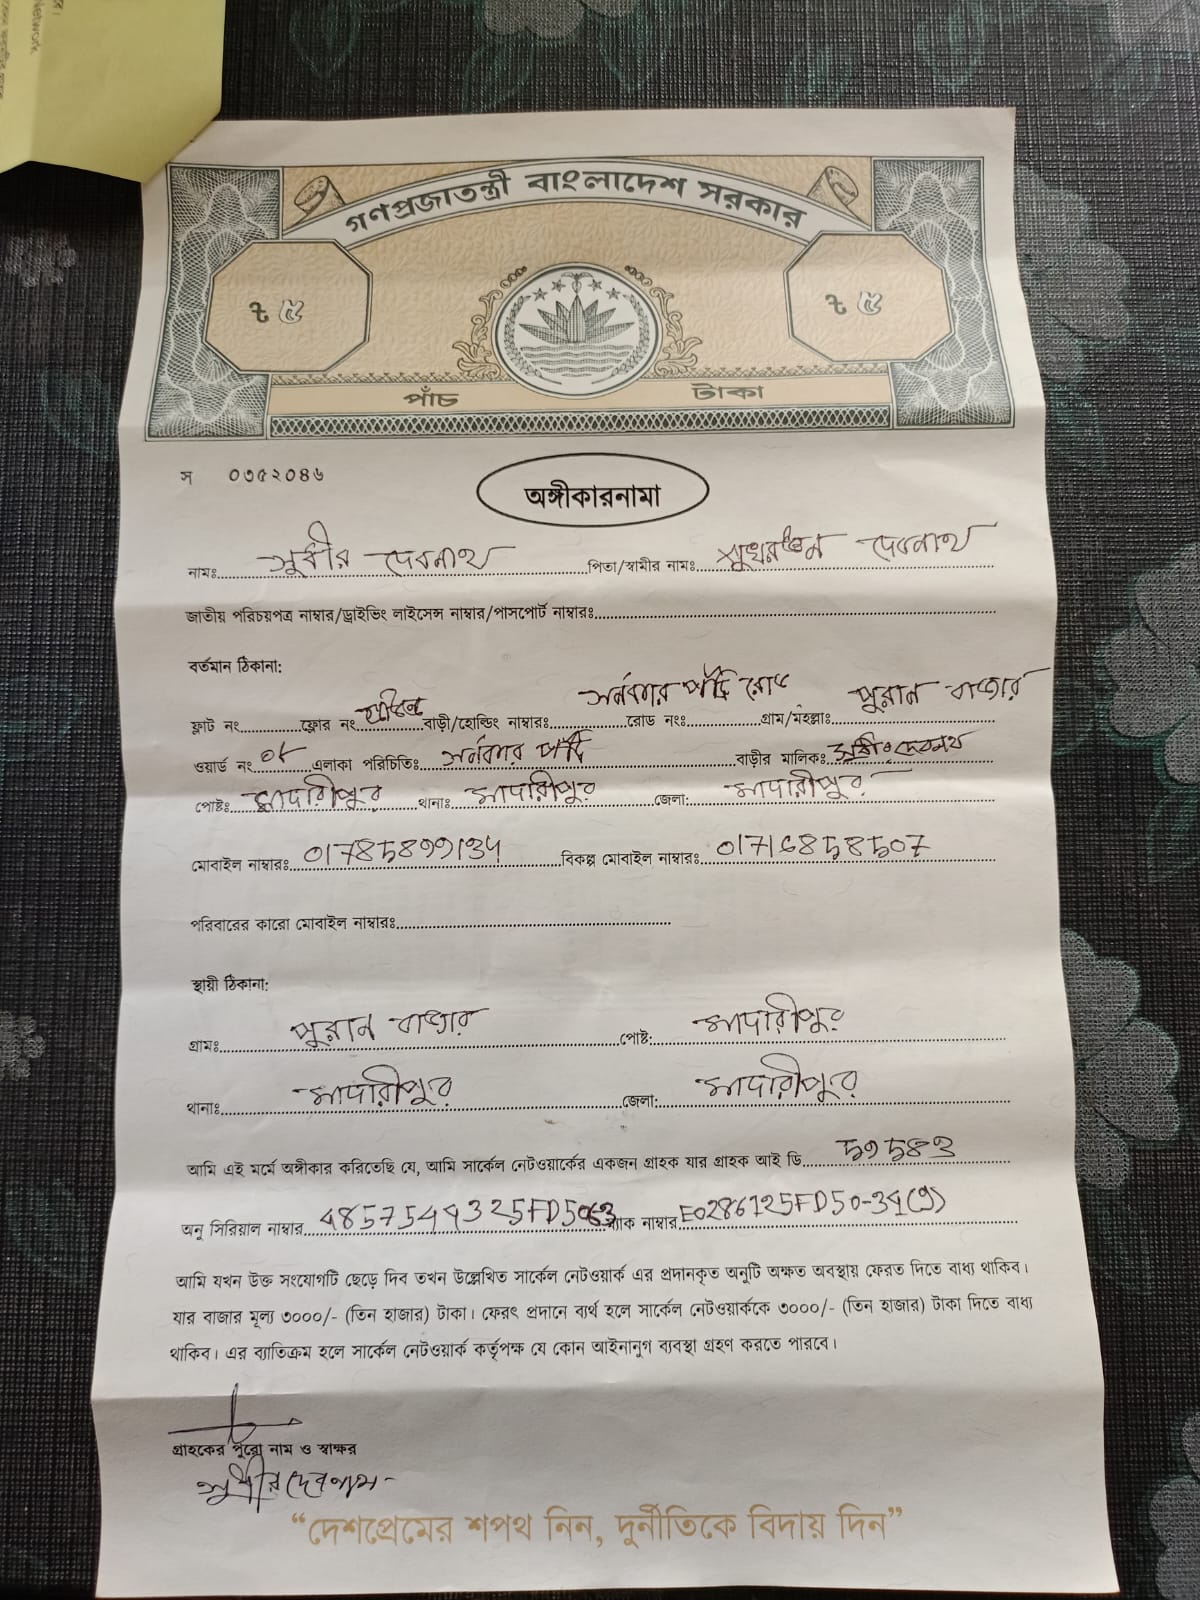 Network
গণপ্রজাতন্ত্রী বাংলাদেশ সরকার
৳ ৫ ৳ ৫
পাঁচ টাকা
স ০৩৫২০৪৬
অঙ্গীকারনামা
নামঃ সুধীর দেবনাথ পিতা/স্বামীর নামঃ সুখরঞ্জন দেবনাথ
জাতীয় পরিচয়পত্র নাম্বার/ড্রাইভিং লাইসেন্স নাম্বার/পাসপোর্ট নাম্বারঃ
বর্তমান ঠিকানা:
ফ্লাট নং ফ্লোর নং বাড়ী/হোল্ডিং নাম্বারঃ রোড নংঃ গ্রাম/মহল্লাঃ পুরান বাজার
ওয়ার্ড নং ০৮ এলাকা পরিচিতিঃ বাড়ীর মালিকঃ সুধীর দেবনাথ
পোষ্টঃ মাদারীপুর থানাঃ মাদারীপুর জেলা: মাদারীপুর
মোবাইল নাম্বারঃ বিকল্প মোবাইল নাম্বারঃ 01716858507
পরিবারের কারো মোবাইল নাম্বারঃ
স্থায়ী ঠিকানা:
গ্রামঃ পুরান বাজার পোষ্ট: মাদারীপুর
থানাঃ মাদারীপুর জেলা: মাদারীপুর
আমি এই মর্মে অঙ্গীকার করিতেছি যে, আমি সার্কেল নেটওয়ার্কের একজন গ্রাহক যার গ্রাহক আই ডি
অনু সিরিয়াল নাম্বার ম্যাক নাম্বার
আমি যখন উক্ত সংযোগটি ছেড়ে দিব তখন উল্লেখিত সার্কেল নেটওয়ার্ক এর প্রদানকৃত অনুটি অক্ষত অবস্থায় ফেরত দিতে বাধ্য থাকিব।
যার বাজার মূল্য ৩০০০/- (তিন হাজার) টাকা। ফেরৎ প্রদানে ব্যর্থ হলে সার্কেল নেটওয়ার্ককে ৩০০০/- (তিন হাজার) টাকা দিতে বাধ্য
থাকিব। এর ব্যতিক্রম হলে সার্কেল নেটওয়ার্ক কর্তৃপক্ষ যে কোন আইনানুগ ব্যবস্থা গ্রহণ করতে পারবে।
গ্রাহকের পুরো নাম ও স্বাক্ষর
সুধীর দেবনাথ
“দেশপ্রেমের শপথ নিন, দুর্নীতিকে বিদায় দিন”